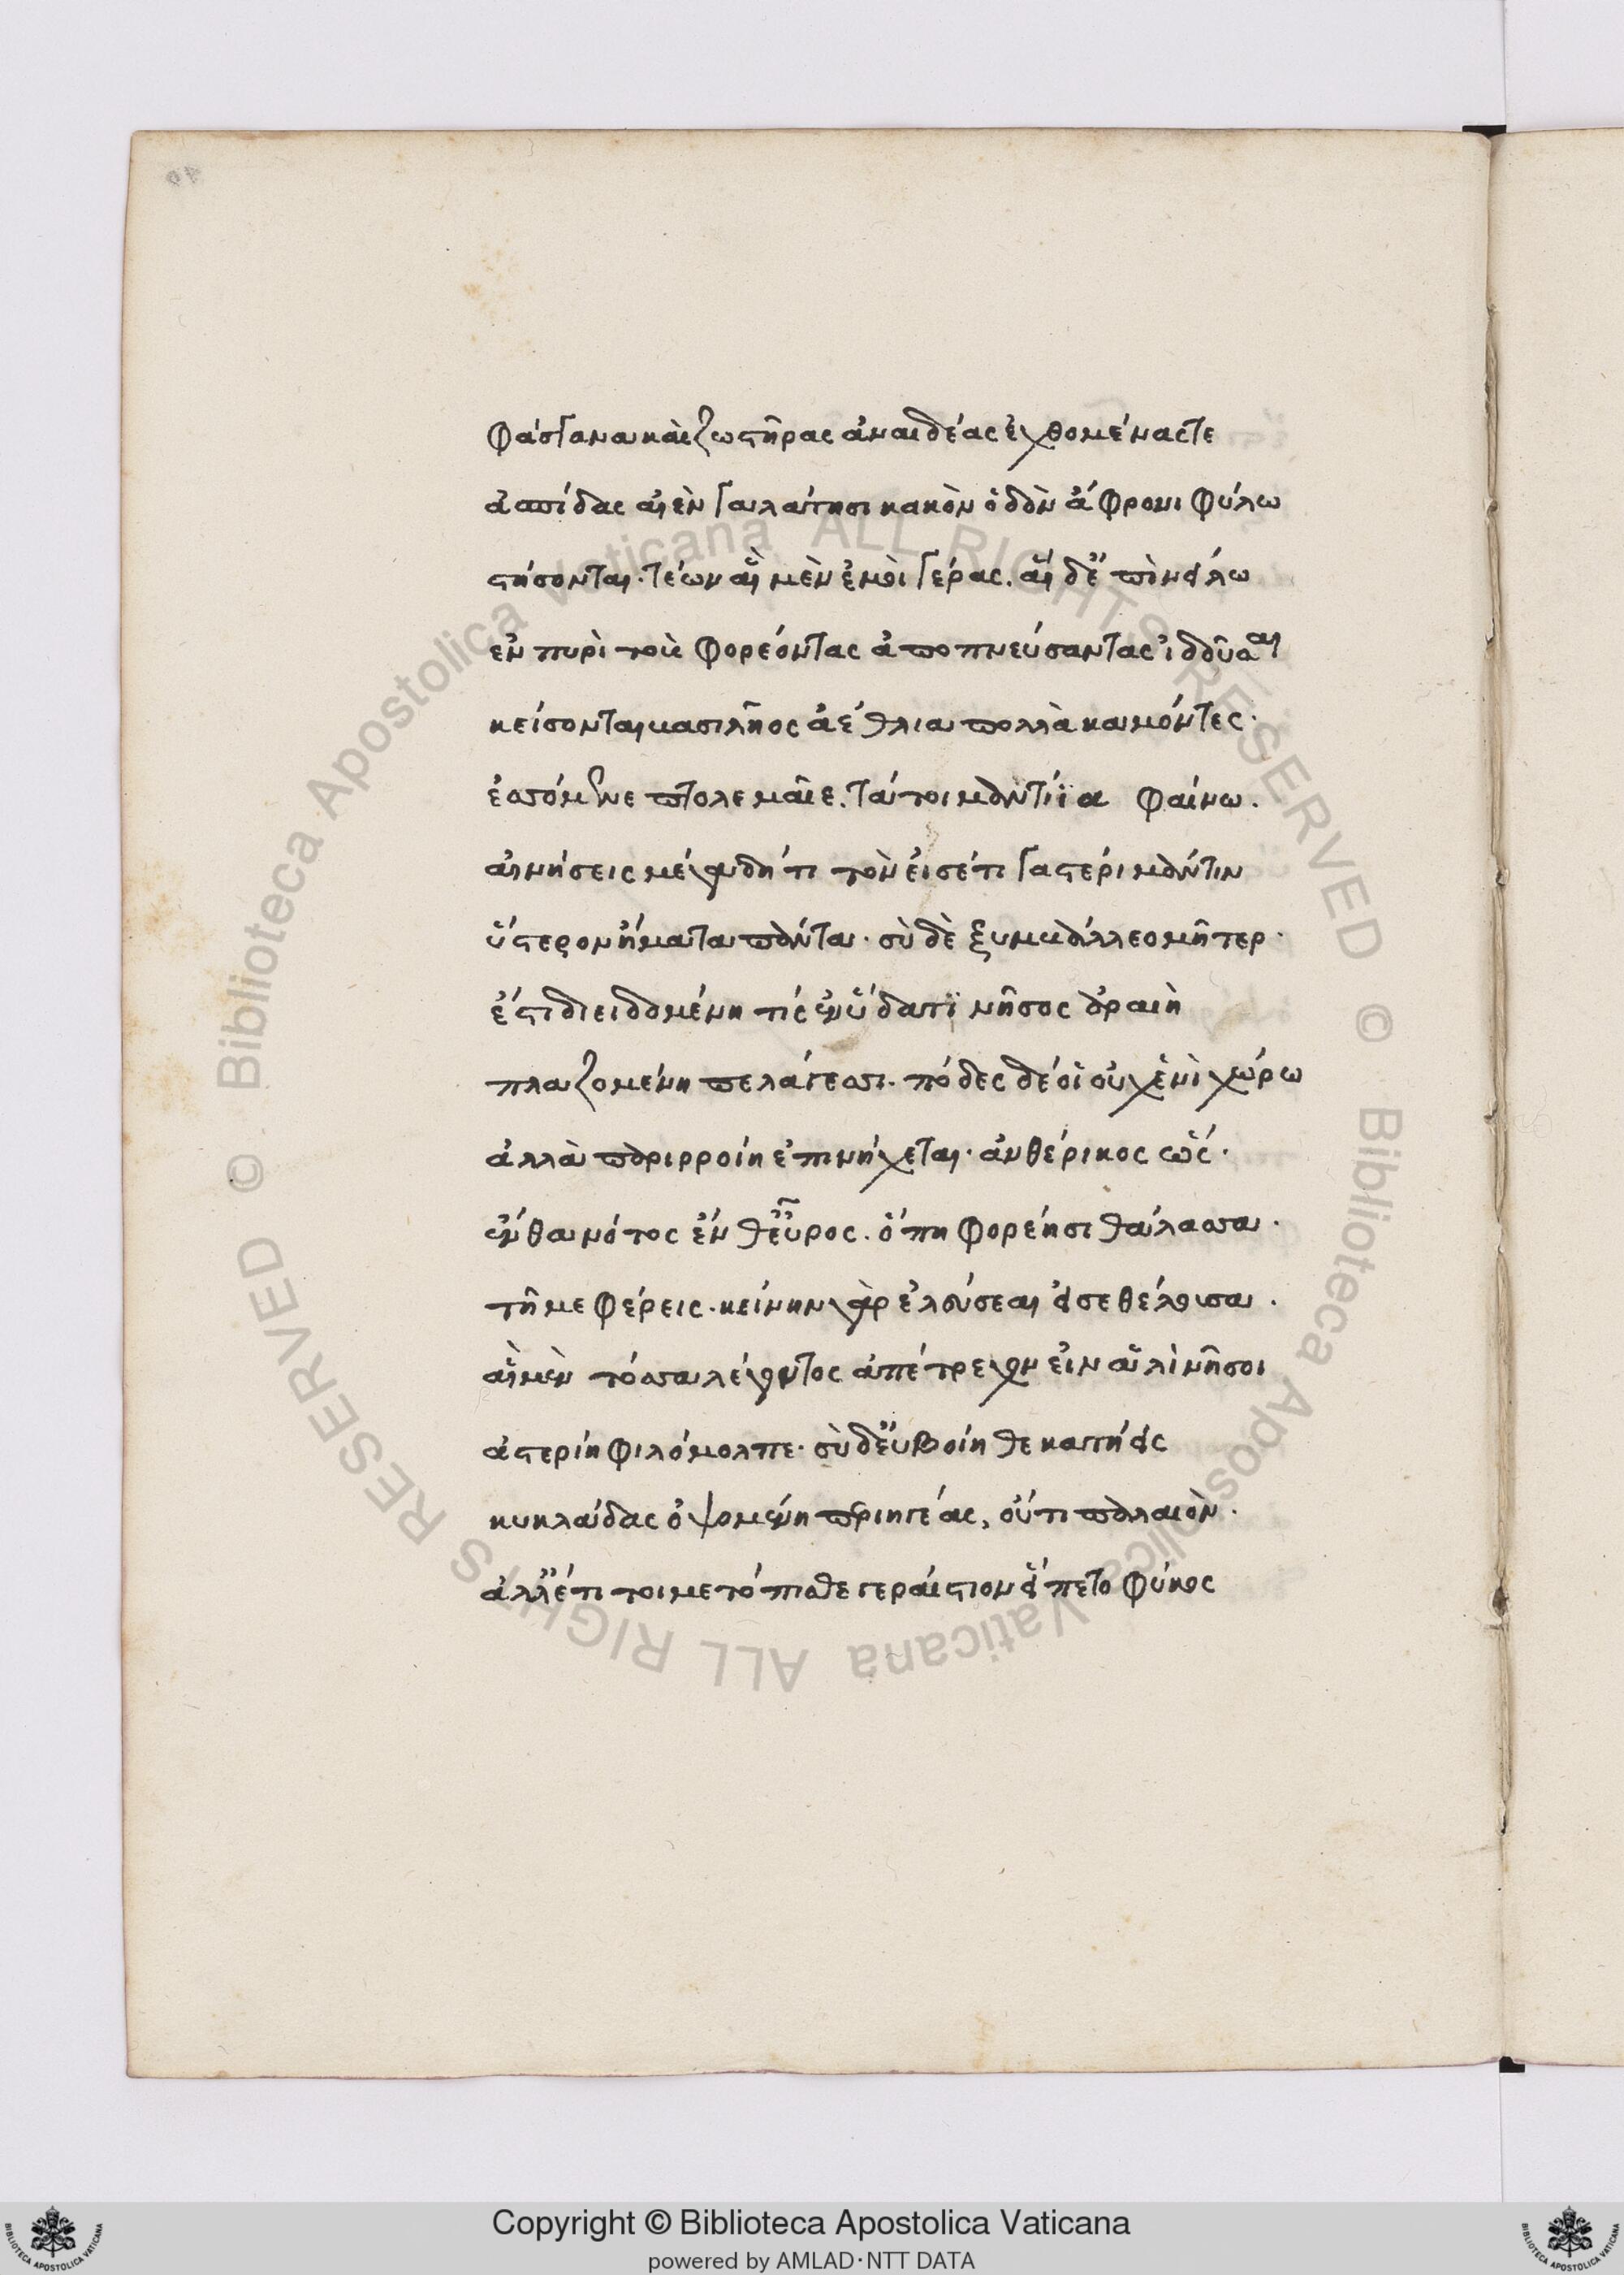 φάσγανα καὶ ζωστῆρας ἀναιδέας ἐχθομένας τε
ἀσπίδας αἱ ἐν γαλάτησι κακὸν ὁδὸν ἄφρονι φύλω
στήσονται· τέων αἳ μὲν ἐμοὶ γέρας. αἳ δ' ἐπὶ νείλω
ἐν πυρὶ τοὺς φορέοντας ἀποπνεύσαντας ἰδοῦσαι
κείσονται βασιλῆος ἀέθλια πολλὰ καμόντες·
ἐσσόμενε πτολεμαῖε. τά τοι μαντήϊα φαίνω.
αἰνήσεις μέγα δή τι τὸν εἰσέτι γαστέρι μάντιν
ὕστερον ἤματα πάντα· σὺ δὲ ξυμβάλλεο μῆτερ·
ἔστι διειδομένη τίς ἐν ὕδατι νῆσος ἀραιὴ
πλαζομένη πελάγεσσι· πόδες δέ οἱ οὐχ ἑνὶ χώρω
ἀλλὰ παλιρροίη ἐπινήχεται· ἀνθέρικος ὥς·
ἔνθα νότος ἔνθ' εὖρος. ὅπη φορέησι θάλασσα·
τῆ με φέρεις· κείνην γὰρ ἐλεύσεαι εἰς ἐθέλουσα·
αἳ μὲν τόσσα λέγοντος ἀπέτρεχον εἰν ἁλὶ νῆσοι
ἀστερίη φιλόμολπε· σὺ δ' εὐβοίηθε κατήεις
κυκλάδας ὀψομένη περιηγέας, οὔτι παλαιὸν·
ἀλλ' ἔτι τοι μετόπισθε γεραίστιον εἵπετο φύκος
Copyright © Biblioteca Apostolica Vaticana
powered by AMLAD·NTT DATA
Biblioteca Apostolica Vaticana ALL RIGHTS RESERVED © Biblioteca Apostolica Vaticana ALL RIGHTS RESERVED ©